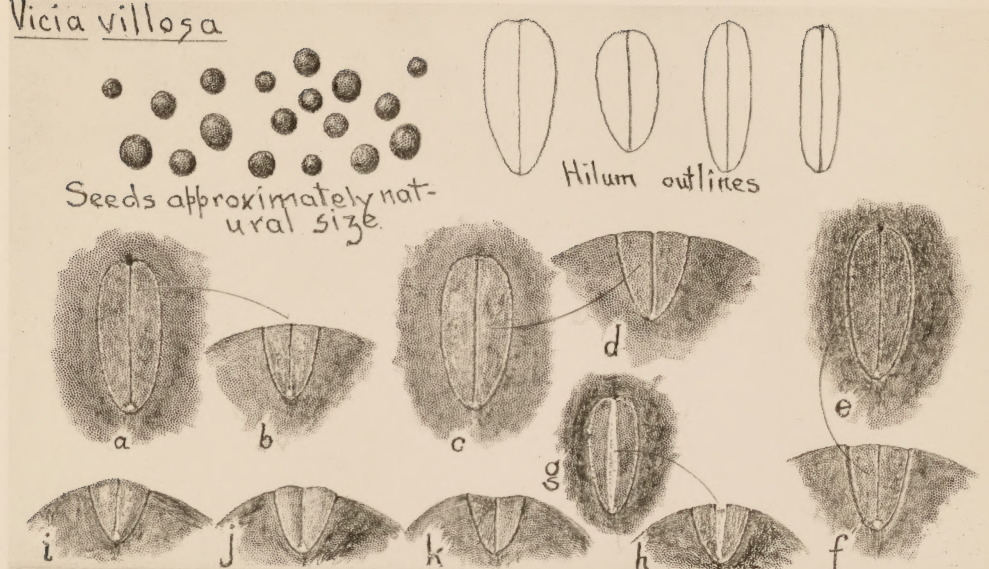 Vicia villosa
Seeds approximately nat-
ural size.
Hilum outlines
a
b
c
d
e
g
i
j
k
h
f